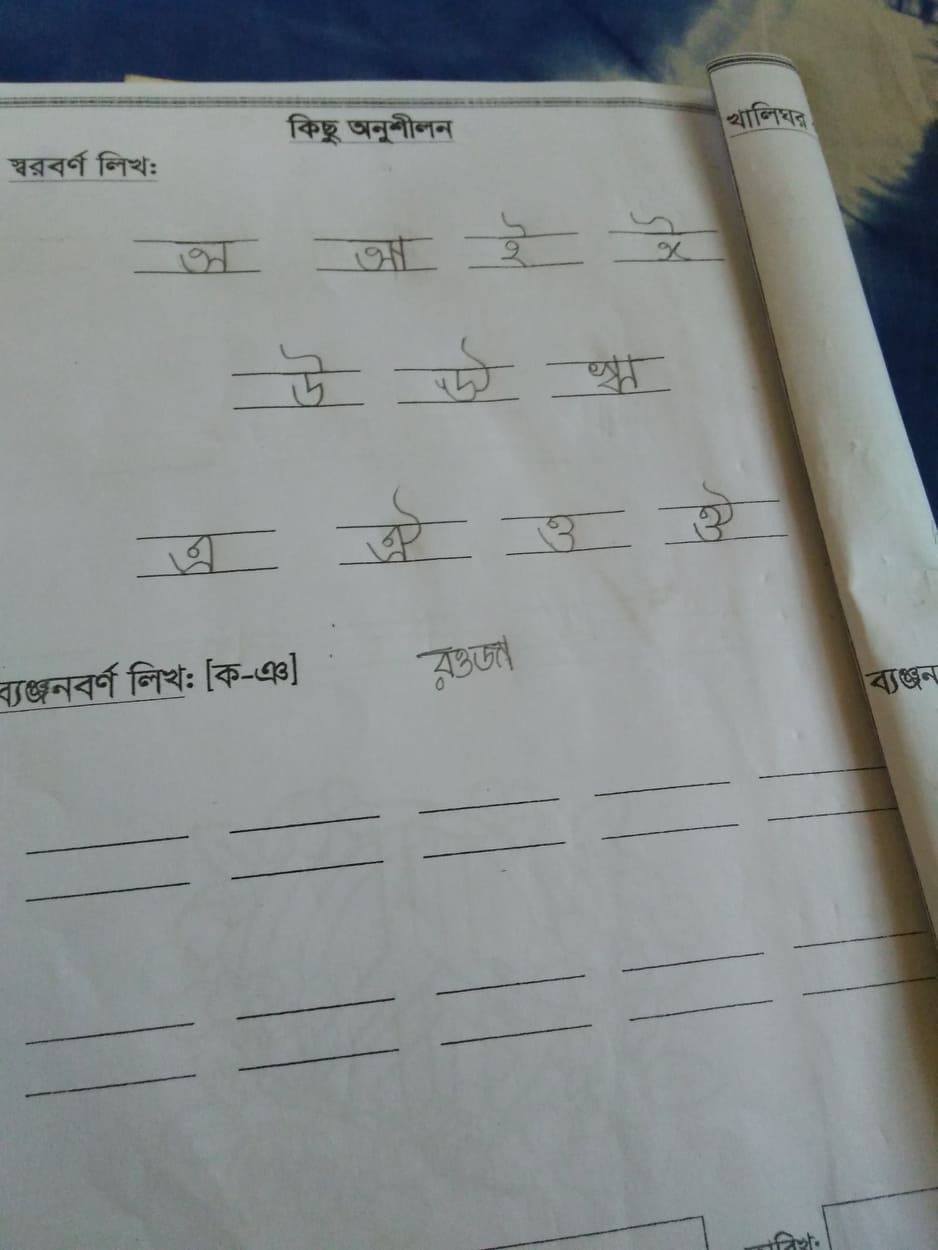 কিছু অনুশীলন
খালিঘর
স্বরবর্ণ লিখ:
অ আ ই ঈ
উ ঊ ঋ
এ ঐ ও ঔ
ব্যঞ্জনবর্ণ লিখ: [ক-ঞ]
ব্যঞ্জন